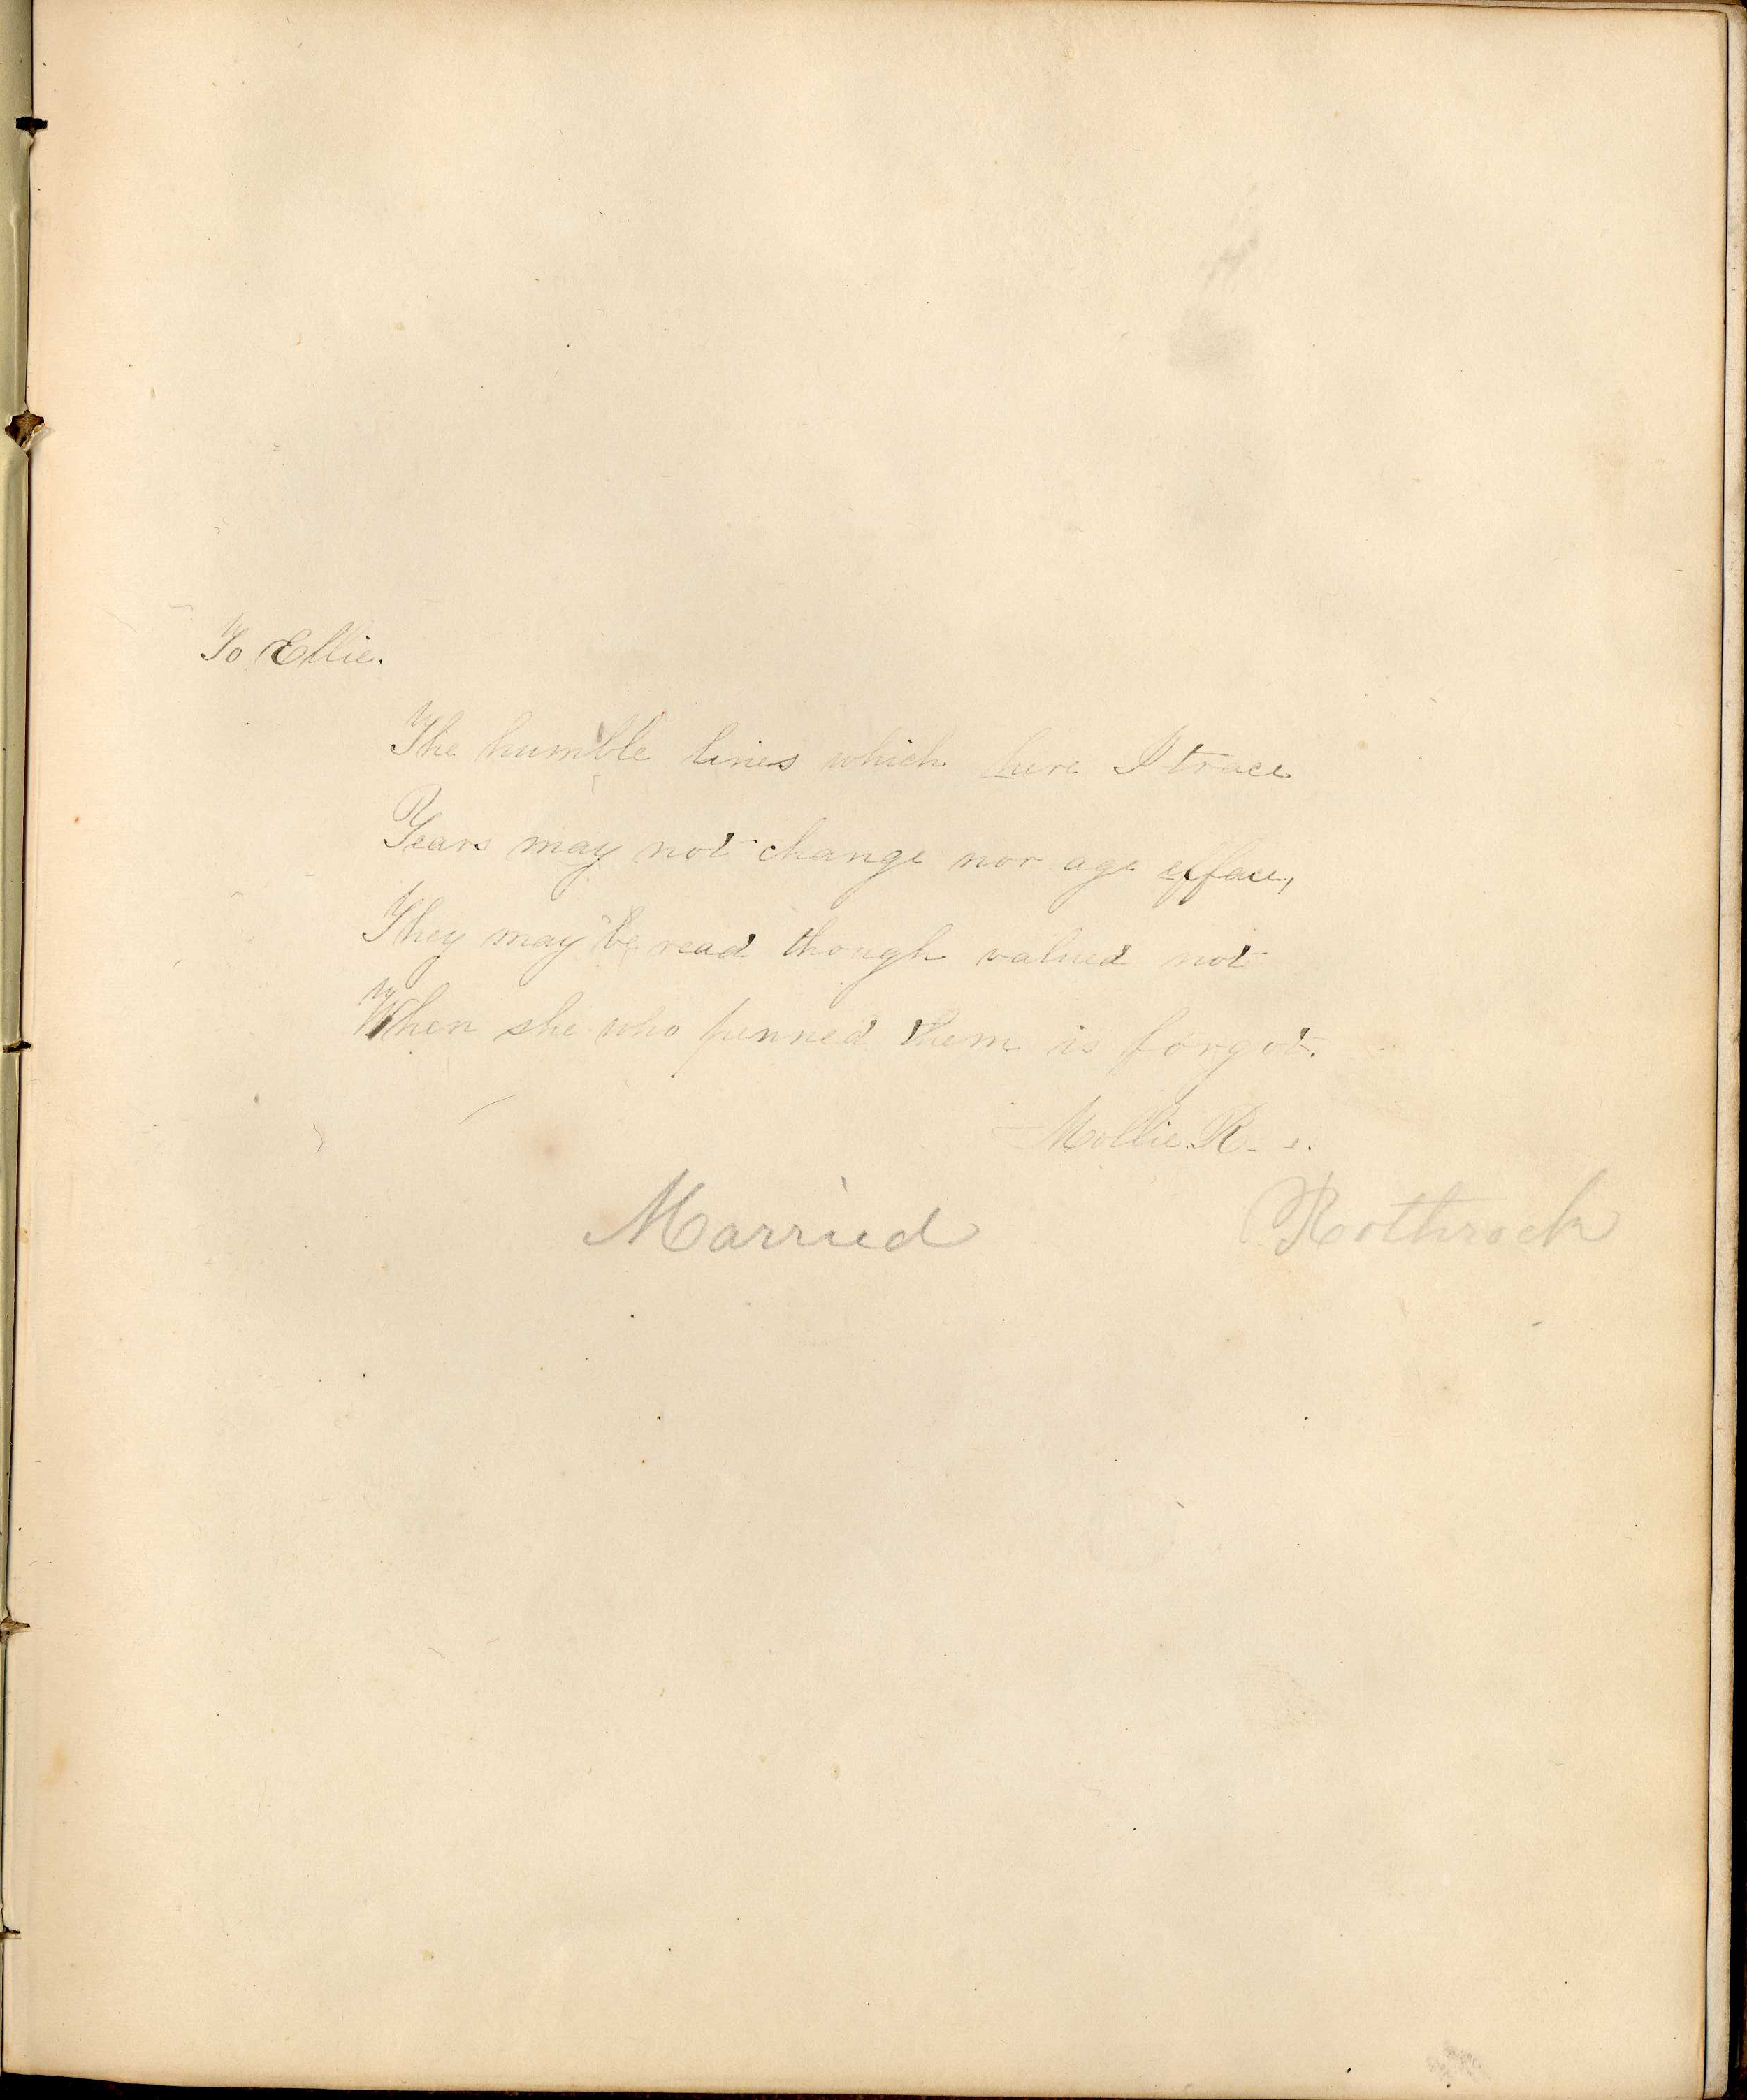 To Ellie.
The humble lines which here I trace
Years may not change nor age efface,
They may be read though valued not
When she who penned them is forgot.
Mollie R-
Married Rothrock